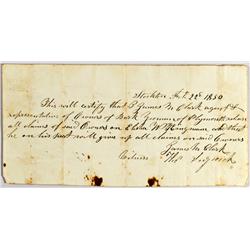 Stockton Oct. 22d 1850
This will certify that I James M. Clark agent &
representative of Owners of Bark Yeoman of Plymouth release
all claims of said Owners on Elisha W Kingman and that
he on his part will give up all claims on said Owners
James M. Clark
Witness